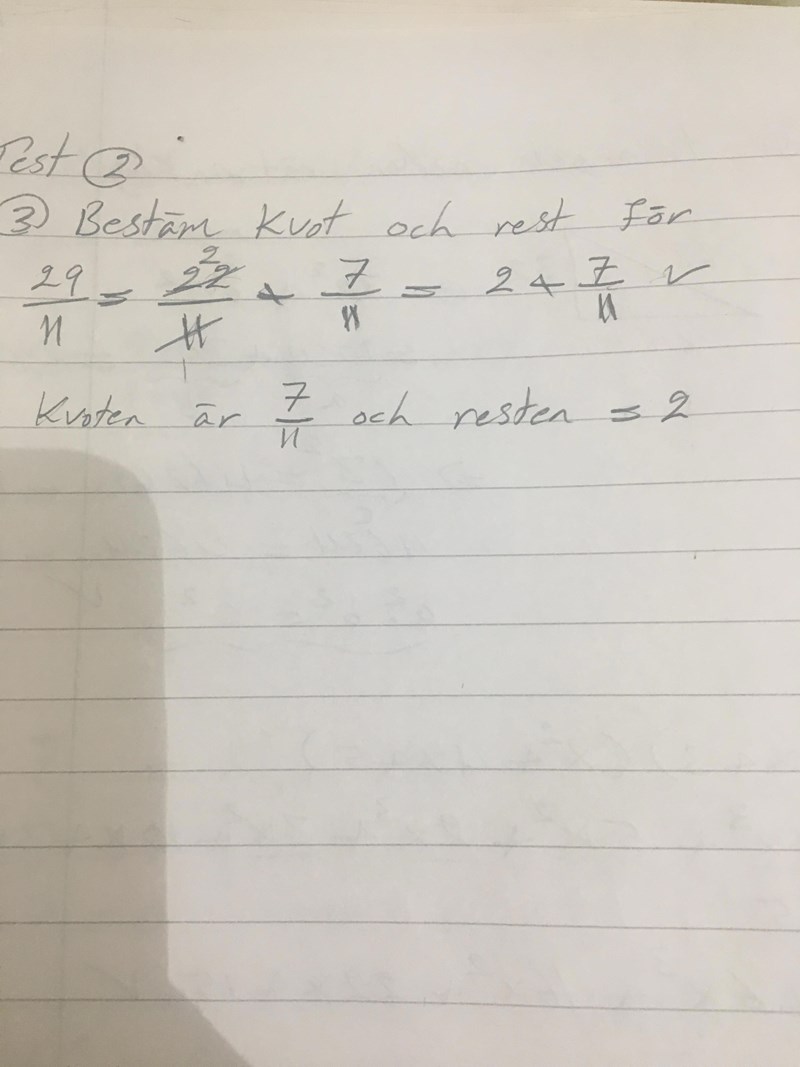 Test ②
③ Bestäm kvot och rest för
29/11 = 22/11 2 + 7/11 = 2 + 7/11 ✓
1
Kvoten är 7/11 och resten = 2